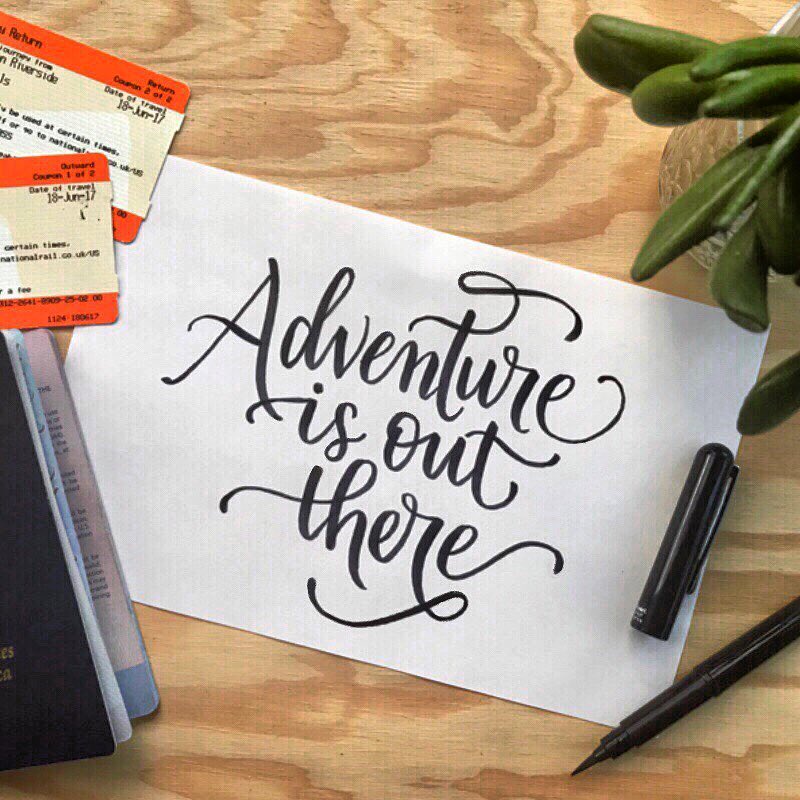 Return
Journey from
Riverside
ls
Return
Coupon 2 of 2
Date of travel
18-Jun-17
be used at certain times.
or go to national
co.uk/US
Outward
Coupon 1 of 2
Date of travel
18-Jun-17
certain times.
nationalrail.co.uk/US
r a fee
312-2641-8909-25-02 00
1124 180617
Adventure
is out
there